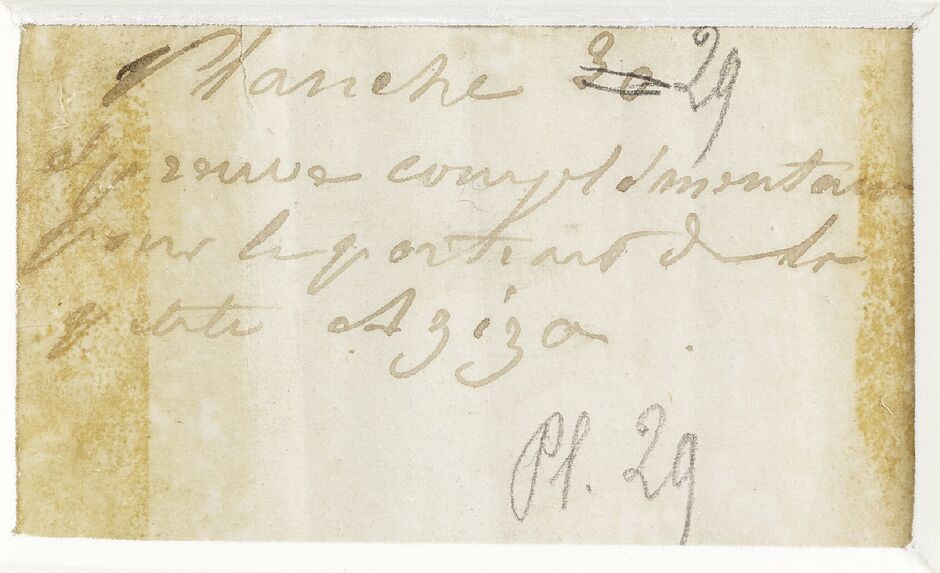 Planche 30 29
épreuve complémentair
pour le portrait de la
petite Aziza
Pl. 29